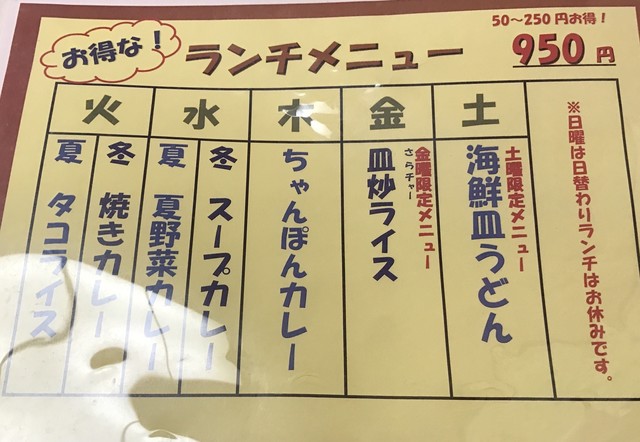 お得な！
ランチメニュー
50〜250円お得！
950円
火
水
木
金
土
夏 タコライス
冬 焼きカレー
夏 夏野菜カレー
冬 スープカレー
ちゃんぽんカレー
金曜限定メニュー
さらチャー
皿炒ライス
土曜限定メニュー
海鮮皿うどん
※日曜は日替わりランチはお休みです。